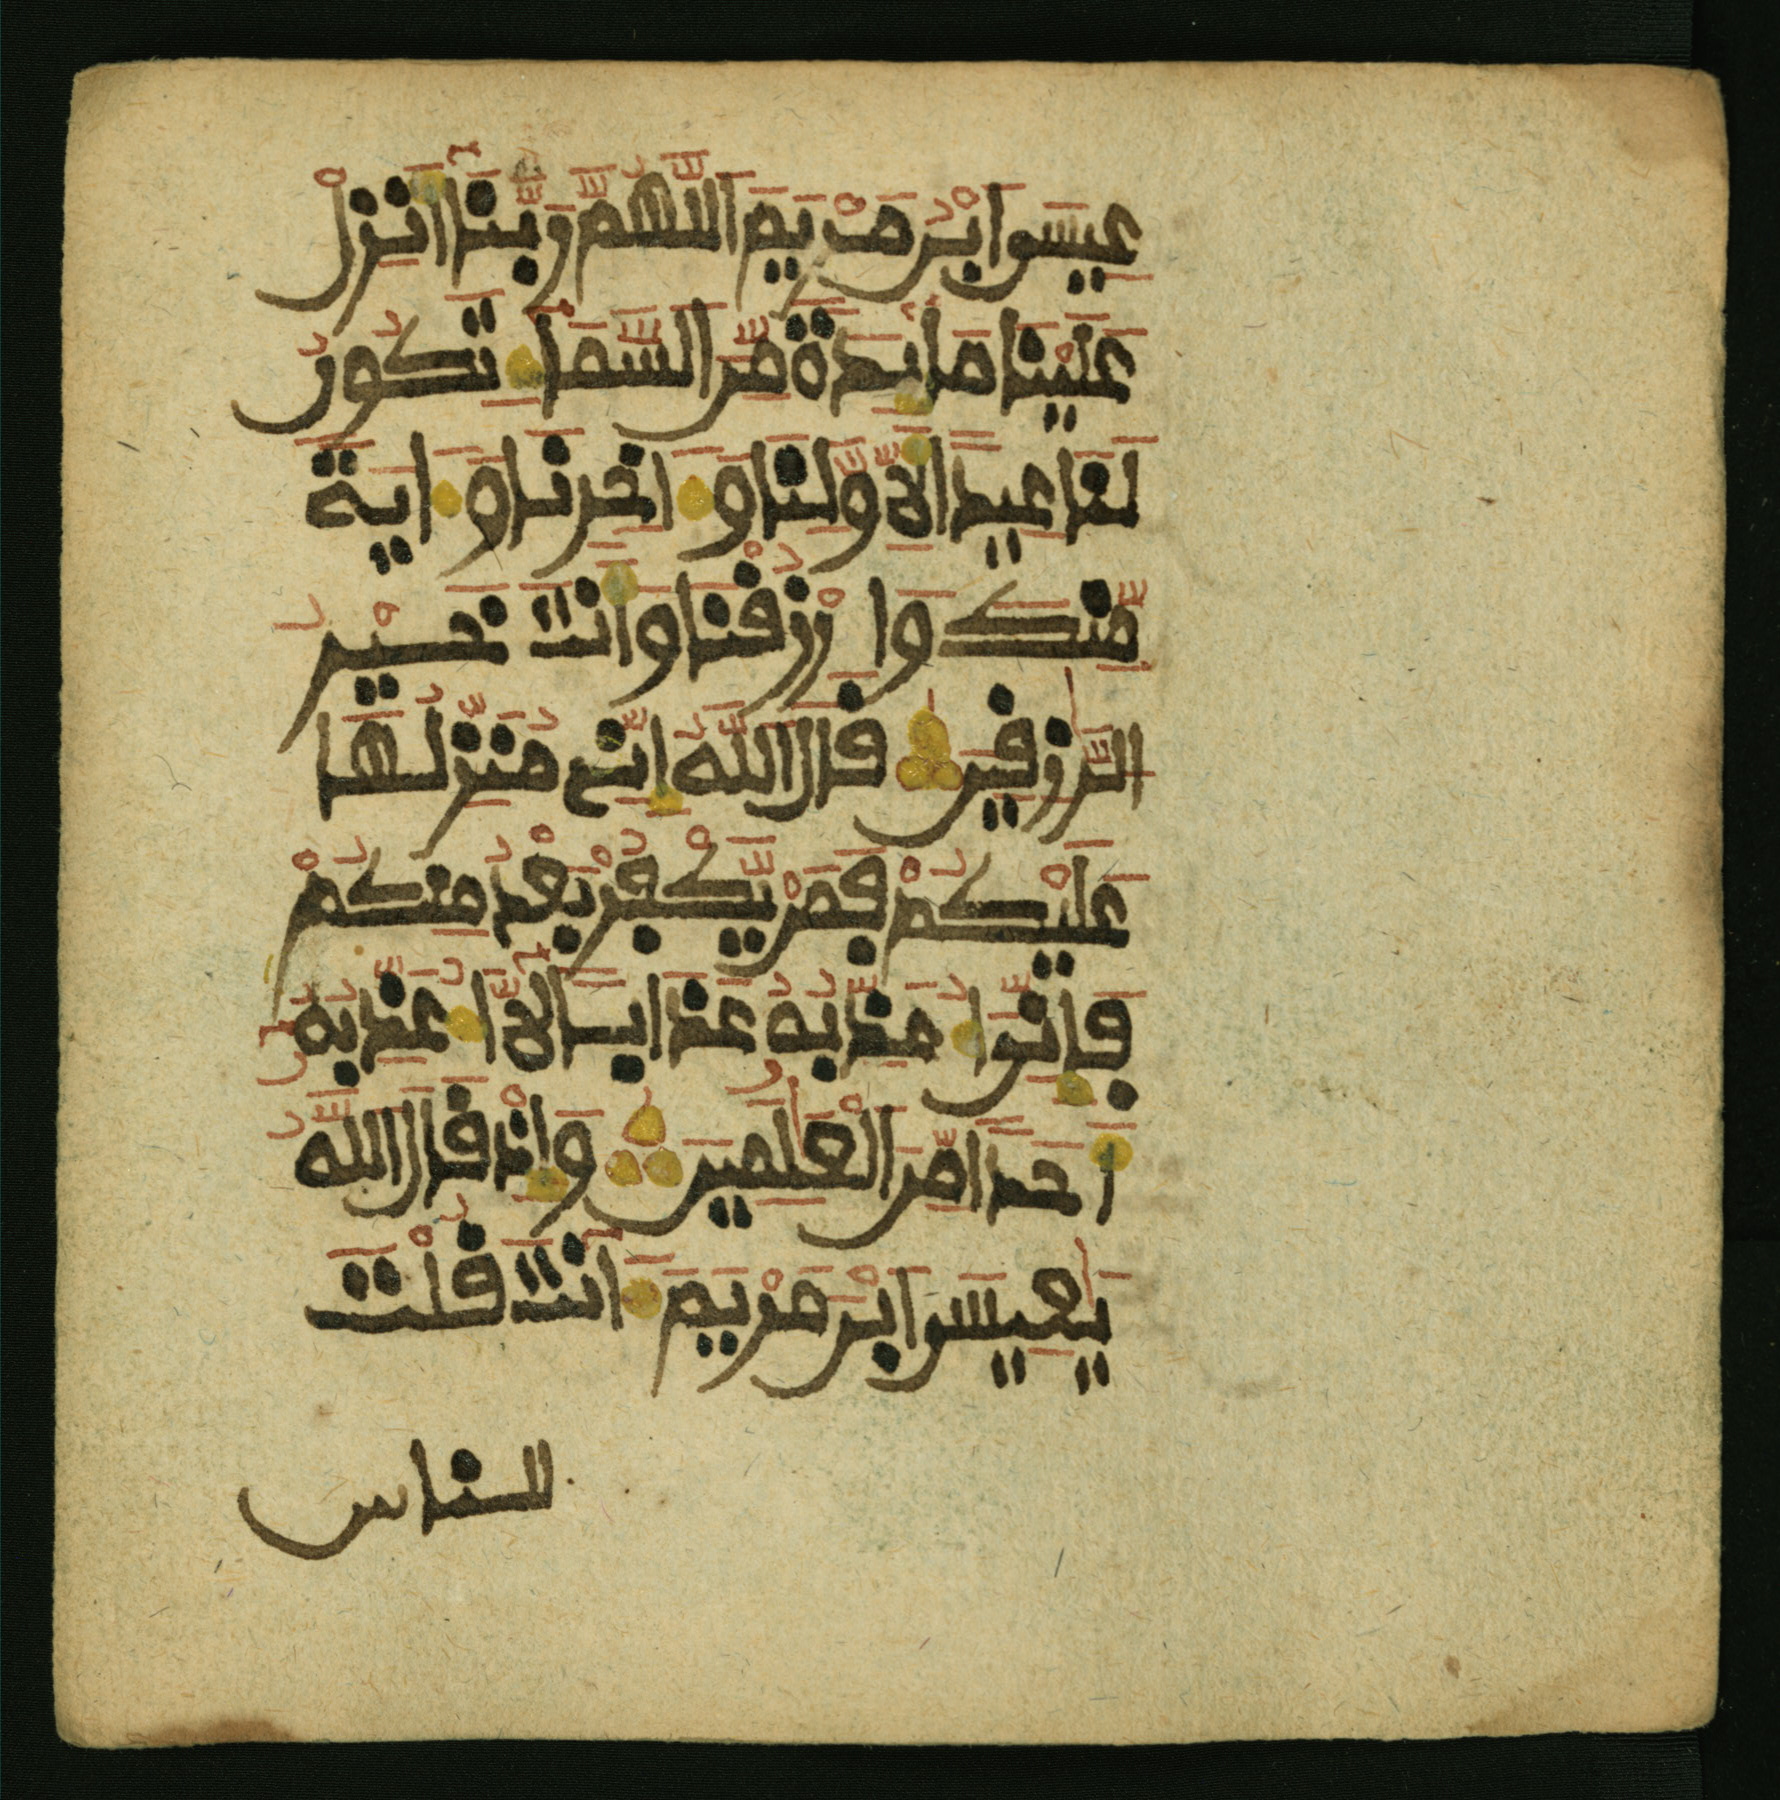 عِيسَى ابْنُ مَرْيَمَ اللَّهُمَّ رَبَّنَا أَنزِلْ
عَلَيْنَا مَائِدَةً مِّنَ السَّمَاءِ تَكُونُ
لَنَا عِيدًا لِأَوَّلِنَا وَءَاخِرِنَا وَءَايَةً
مِّنكَ وَارْزُقْنَا وَأَنتَ خَيْرُ
الرَّٰزِقِينَ قَالَ اللَّهُ إِنِّي مُنَزِّلُهَا
عَلَيْكُمْ فَمَنْ يَّكْفُرْ بَعْدُ مِنكُمْ
فَإِنِّي أُعَذِّبُهُ عَذَابًا لَّا أُعَذِّبُهُ
أَحَدًا مِّنَ الْعَٰلَمِينَ وَإِذْ قَالَ اللَّهُ
يَٰعِيسَى ابْنَ مَرْيَمَ ءَأَنتَ قُلْتَ
للناس